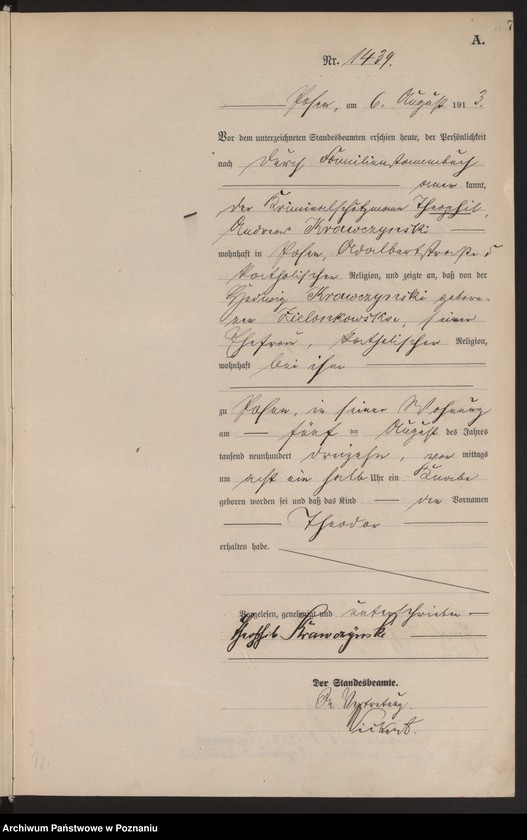 7
A.
Nr. 1439.
Posen, am 6. August 1913.
Vor dem unterzeichneten Standesbeamten erschien heute, der Persönlichkeit
nach durch Familienstammbuch
aner kannt,
der Kriminalschutzmann Theophil,
Andreas Krawczynski
wohnhaft in Posen, Adalbertstraße 5
katholischer Religion, und zeigte an, daß von der
Hedwig Krawczynski gebore-
nen Zielonkowska, seiner
Ehefrau, katholischer Religion,
wohnhaft bei ihm
zu Posen, in seiner Wohnung
am fünf ten August des Jahres
tausend neunhundert dreizehn, vor mittags
um acht ein halb Uhr ein Knabe
geboren worden sei und daß das Kind den Vornamen
Theodor
erhalten habe.
Vorgelesen, genehmigt und unterschrieben
Theophil Krawczynski
Der Standesbeamte.
In Vertretung.
Archiwum Państwowe w Poznaniu